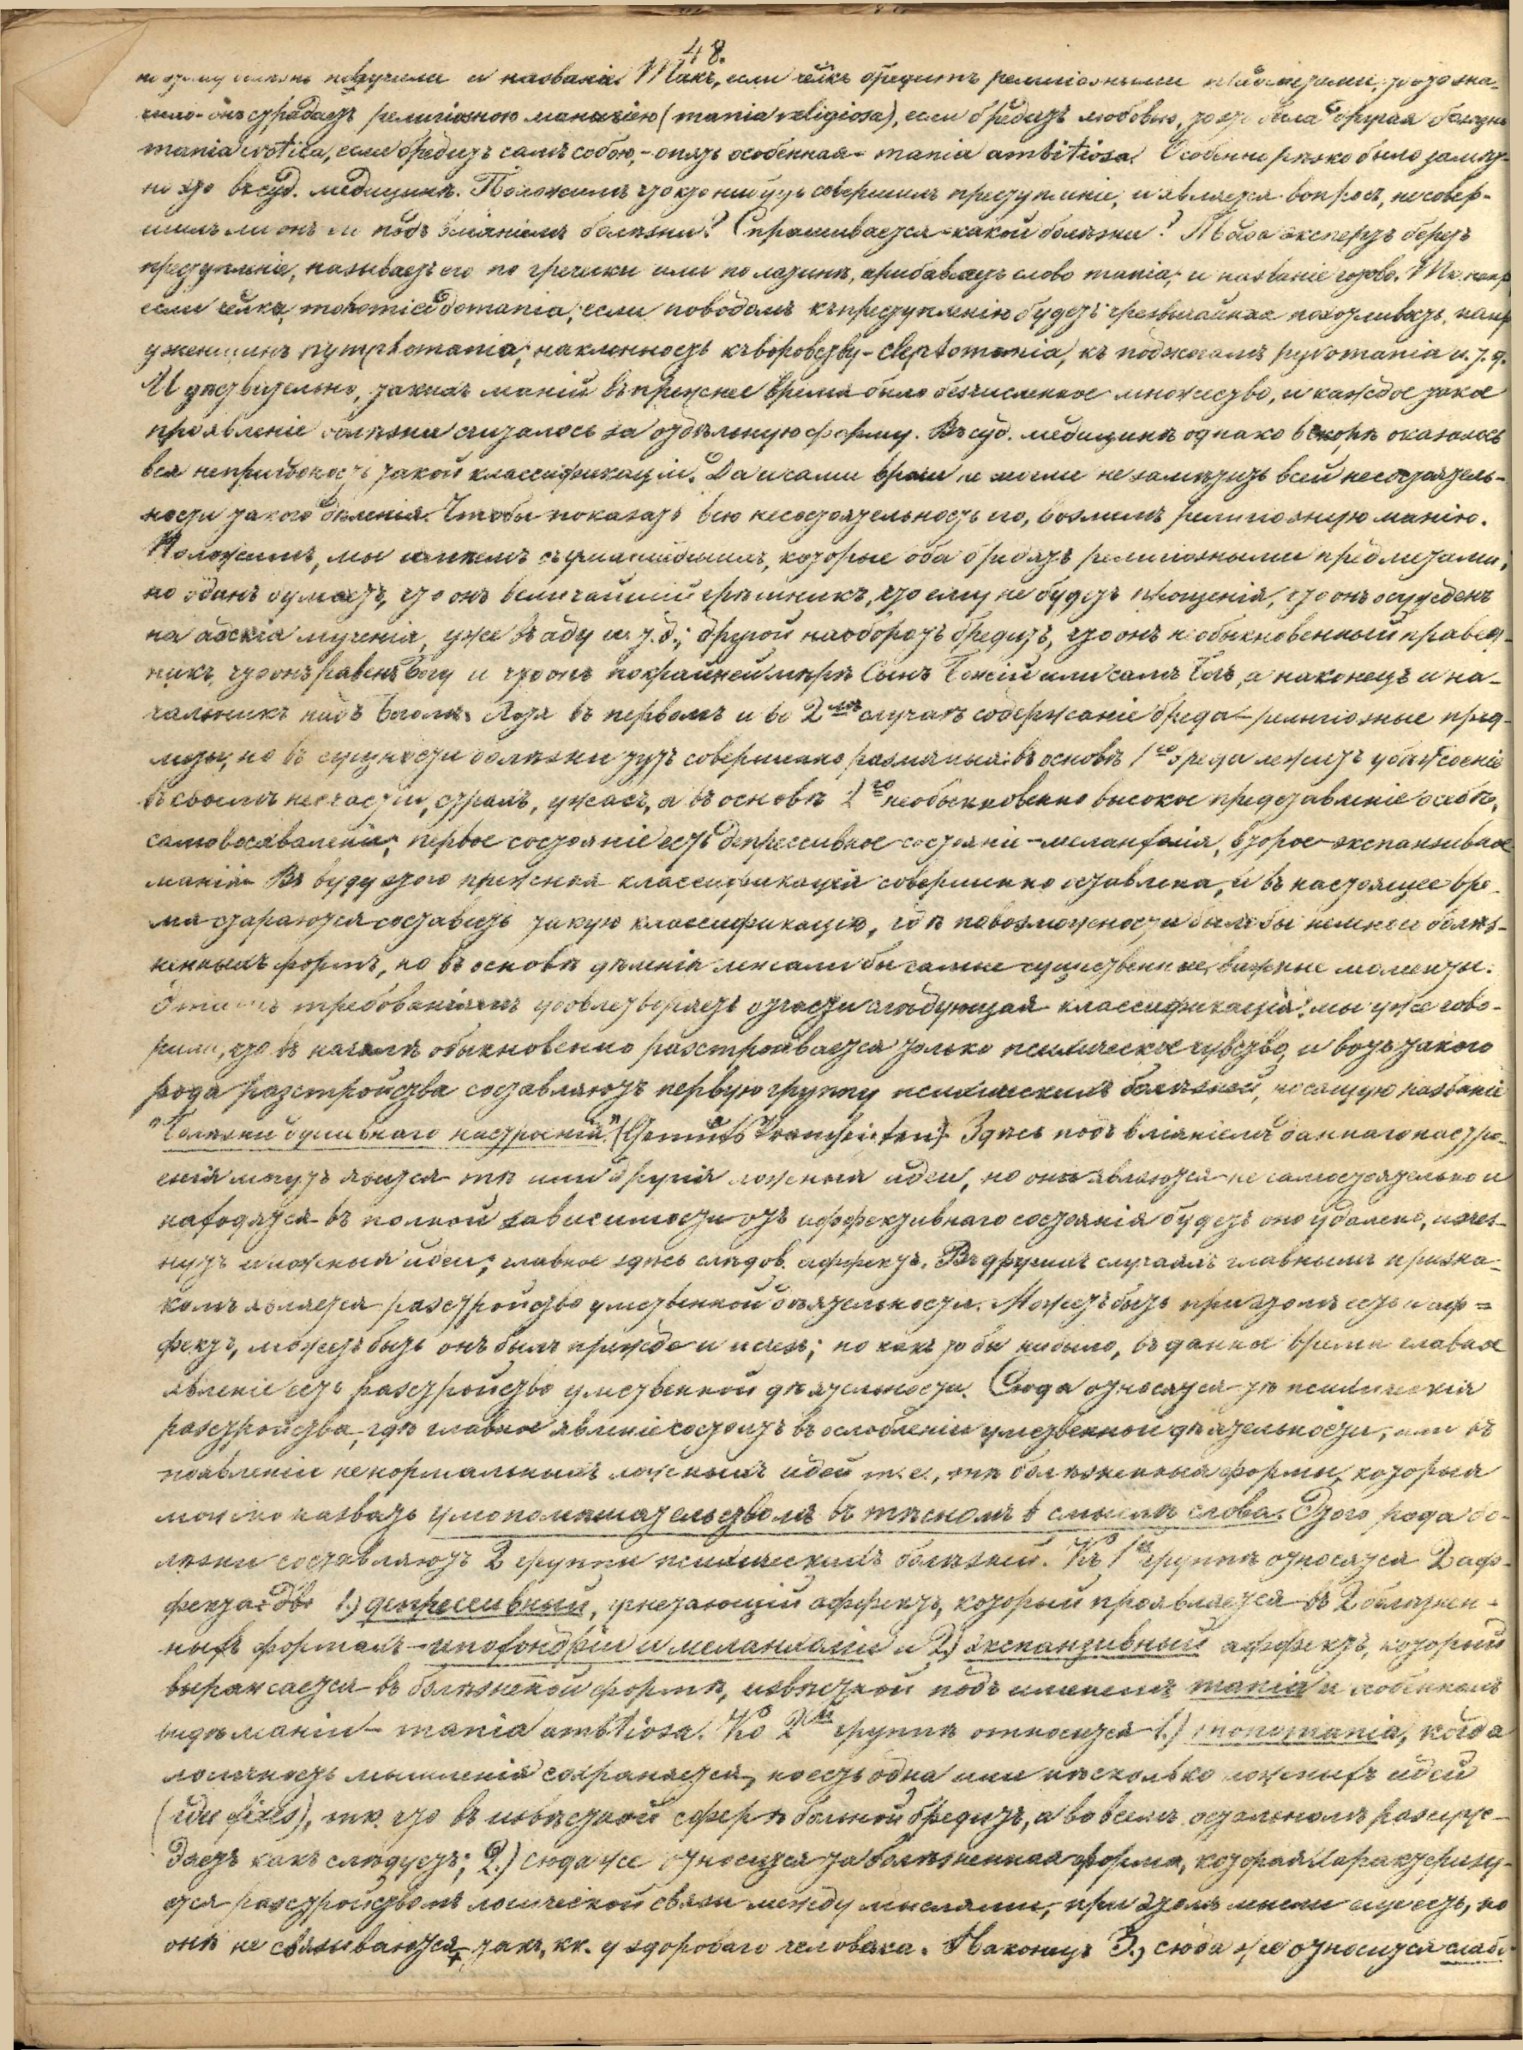 48.
по этому болѣзнь получила и названіе. Такъ, если челкъ бредитъ религіозными предметами, то это зна-
чило-онъ страдаетъ религіозною маніею (mania religiosa), если бредитъ любовью, то это была другая болѣзнь
mania erotica, если бредитъ самъ собою,- опять особенная - mania ambitiosa. Особенно рѣзко было замѣт-
но это въ суд. медицинѣ. Положимъ что кто нибудь совершилъ преступленіе, и является вопросъ, не совер-
шилъ ли онъ его подъ вліяніемъ болѣзни? Спрашивается - какой болѣзни? Тогда экспертъ беретъ
преступленіе, называетъ его по гречески или по латинѣ, прибавляетъ слово mania, и названіе готово. Тк. напр.
если челка, то homicidomania; если поводомъ къ преступленію будетъ чрезвычайная похотливость, напр
у женщинъ nymphomania; наклонность къ воровству - cleptomania, къ поджогамъ pyromania и. т. д.
И дѣйствительно, такихъ маній въ прежнее время было безчисленное множество, и каждое такое
проявленіе болѣзни считалось за отдѣльную форму. Въ суд. медицинѣ однако вскорѣ оказалось
вся непригодность такой классификаціи. Да и сами врачи не могли не замѣтить всей несостоятель-
ности такого дѣленія. Чтобы показать всю несостоятельность его, возьмемъ религіозную манію.
Положимъ, мы имѣемъ 2 умалишенныхъ, которые оба бредятъ религіозными предметами;
но одинъ думаетъ, что онъ величайшій грѣшникъ, что ему не будетъ прощенія, что онъ осужденъ
на адскія мученія, уже въ аду и. т. д.; другой наоборотъ бредитъ, что онъ необыкновенный правед-
никъ, что онъ равенъ Богу и что онъ по крайней мѣрѣ Сынъ Божій или самъ Богъ, а наконецъ и на-
чальникъ надъ Богомъ. Хотя въ первомъ и во 2мъ случаѣ содержаніе бреда - религіозные пред-
меты, но въ сущности болѣзни тутъ совершенно различныя: въ основѣ 1го бреда лежитъ убѣжденіе
въ своемъ несчастіи, страхъ, ужасъ, а въ основѣ 2го необыкновенно высокое представленіе о себѣ,
самовосхваленіе; первое состояніе есть депрессивное состояніе - меланхолія, второе - экспансивное
манія. Въ виду этого прежняя классификація совершенно оставлена, и въ настоящее вре-
мя стараются составить такую классификацію, гдѣ по возможности было бы немного болѣз-
ненныхъ формъ, но въ основѣ дѣленія лежали бы самые существенные, важные моменты.
Этимъ требованіямъ удовлетворяетъ отчасти слѣдующая классификація: мы уже гово-
рили, что въ началѣ обыкновенно разстраивается только психическое чувство, и вотъ такого
рода разстройства составляютъ первую группу психическихъ болѣзней, носящую названіе
"Болѣзни душевнаго настроенія" (Gemüthskrankheiten). Здѣсь подъ вліяніемъ даннаго настро-
енія могутъ явится тѣ или другія ложныя идеи, но онѣ являются не самостоятельно и
находятся въ полной зависимости отъ аффективнаго состоянія будетъ оно удалено, исчез-
нутъ и ложныя идеи; главное здѣсь слѣдов. аффектъ. Въ другихъ случаяхъ главнымъ призна-
комъ является разстройство умственной дѣятельности. Можетъ быть при этомъ есть и аф-
фектъ, можетъ быть онъ былъ прежде и исчезъ; но какъ то бы ни было, въ данное время главное
явленіе есть разстройство умственной дѣятельности. Сюда относятся тѣ психическія
разстройства, гдѣ главное явленіе состоитъ въ ослабленіи умственной дѣятельности, или въ
появленіи ненормальныхъ ложныхъ идей т. е., тѣ болѣзненныя формы, которыя
можно назвать умопомѣшательствомъ въ тѣсномъ смыслѣ слова. Этого рода бо-
лѣзни составляютъ 2 группы психическихъ болѣзней. Къ 1й группѣ относятся 2 аф-
фекта: 1.) депрессивный, угнетающій аффектъ, который проявляется въ 2 болѣзнен-
ныхъ формахъ - ипохондріи и меланхоліи и 2) экспансивный аффектъ, который
выражается въ болѣзненной формѣ, извѣстной подъ именемъ mania и особенномъ
видѣ маніи - mania ambitiosa. Ко 2й группѣ относится 1.) monomania, когда
логичность мышленія сохраняется, но есть одна или нѣсколько ложныхъ идей
(idée fixes), тк. что въ извѣстной сферѣ больной бредитъ, а во всемъ остальномъ разсуж-
даетъ какъ слѣдуетъ; 2.) сюда же относится та болѣзненная форма, которая характеризу-
ется разстройствомъ логической связи между мыслями, при этомъ мысли существуютъ, но
онѣ не связываются такъ, кк. у здороваго человѣка. Наконецъ 3.) сюда же относится слабо-